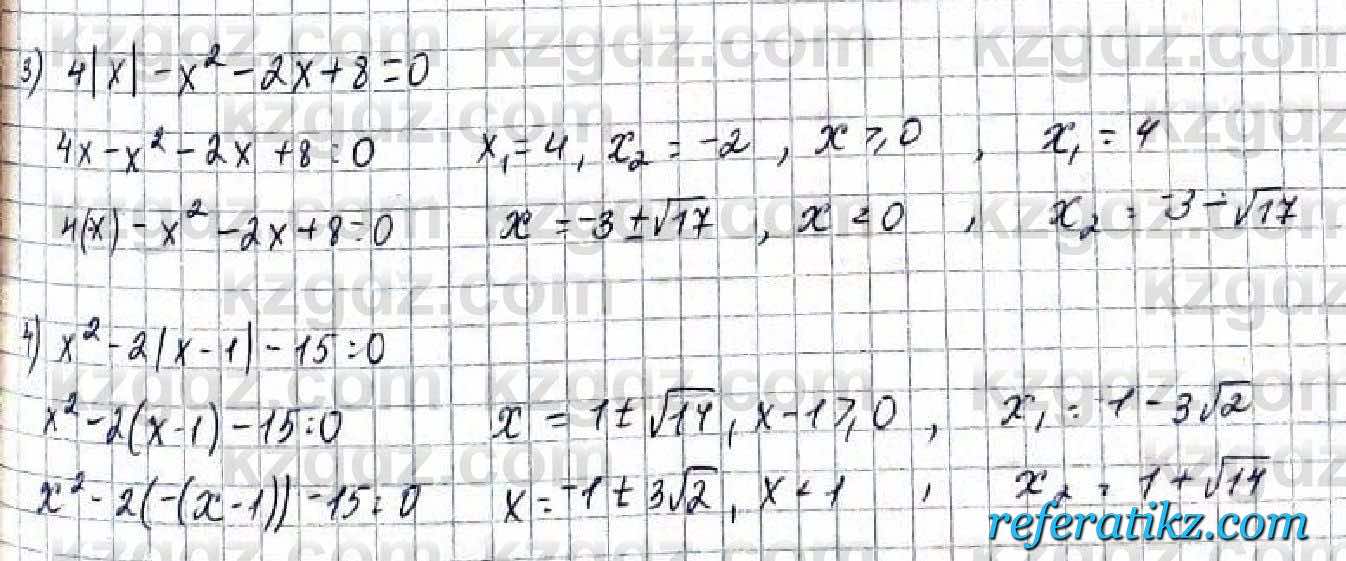 3) 4|x| - x² - 2x + 8 = 0
4x - x² - 2x + 8 = 0 x₁ = 4, x₂ = -2, x ⩾ 0, x₁ = 4
4(x) - x² - 2x + 8 = 0 x = -3 ± √17, x < 0, x₂ = -3 - √17
4) x² - 2|x - 1| - 15 = 0
x² - 2(x - 1) - 15 = 0 x = 1 ± √14, x - 1 ⩾ 0, x₁ = -1 - 3√2
x² - 2(-(x - 1)) - 15 = 0 x = -1 ± 3√2, x < 1, x₂ = 1 + √14
referatikz.com
kzgdz.com